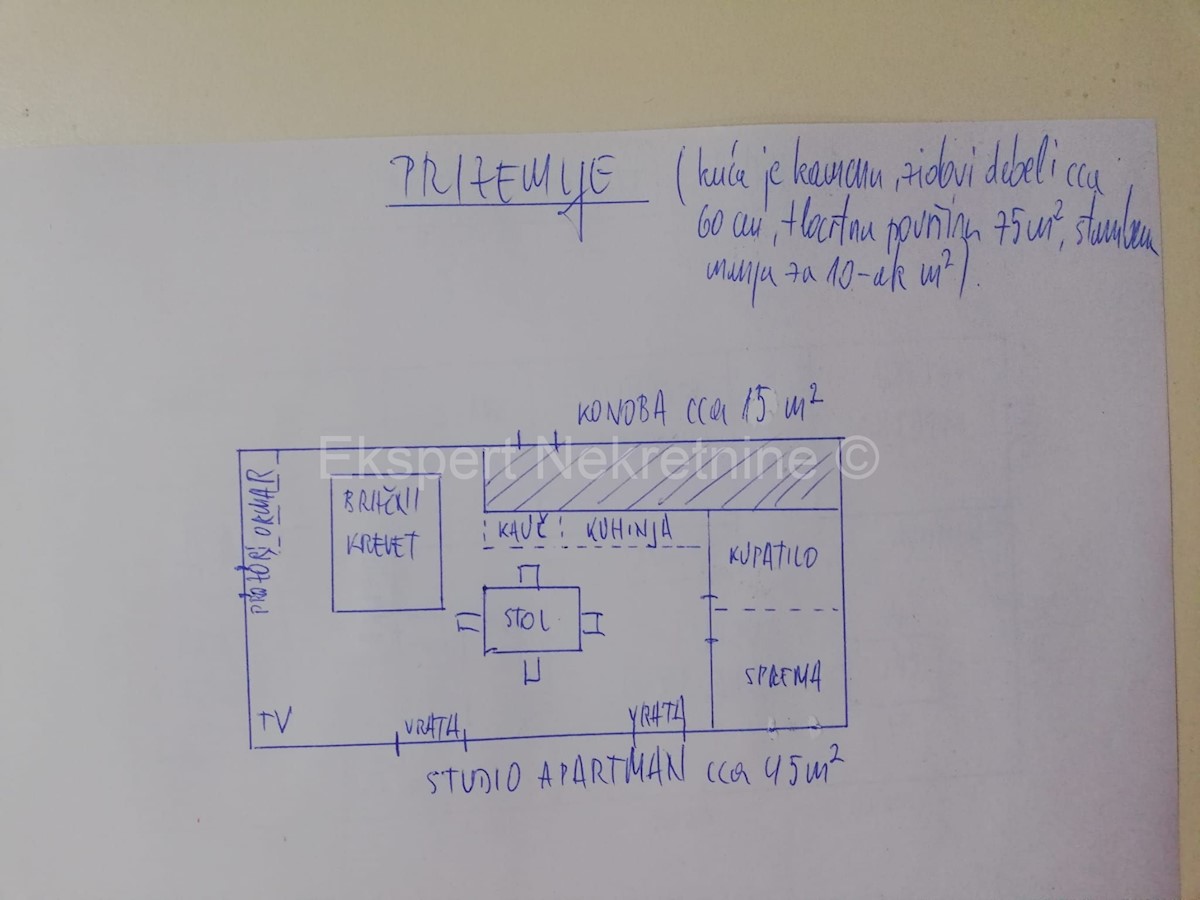 PRIZEMLJE
(kuća je kamena, zidovi debeli cca
60 cm, tlocrtna površina 75 m², stambena
manja za 10-ak m²).
KONOBA cca 15 m²
Ekspert Nekretnine ©
ORMAR
PROZOR
BRAČNI
KREVET
KAUČ
KUHINJA
KUPATILO
STOL
SPREMA
TV
VRATA
VRATA
STUDIO APARTMAN cca 45 m²